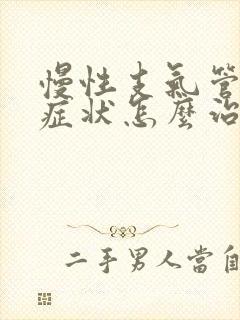 慢性支氣管
症狀怎麼治
二手男人當自